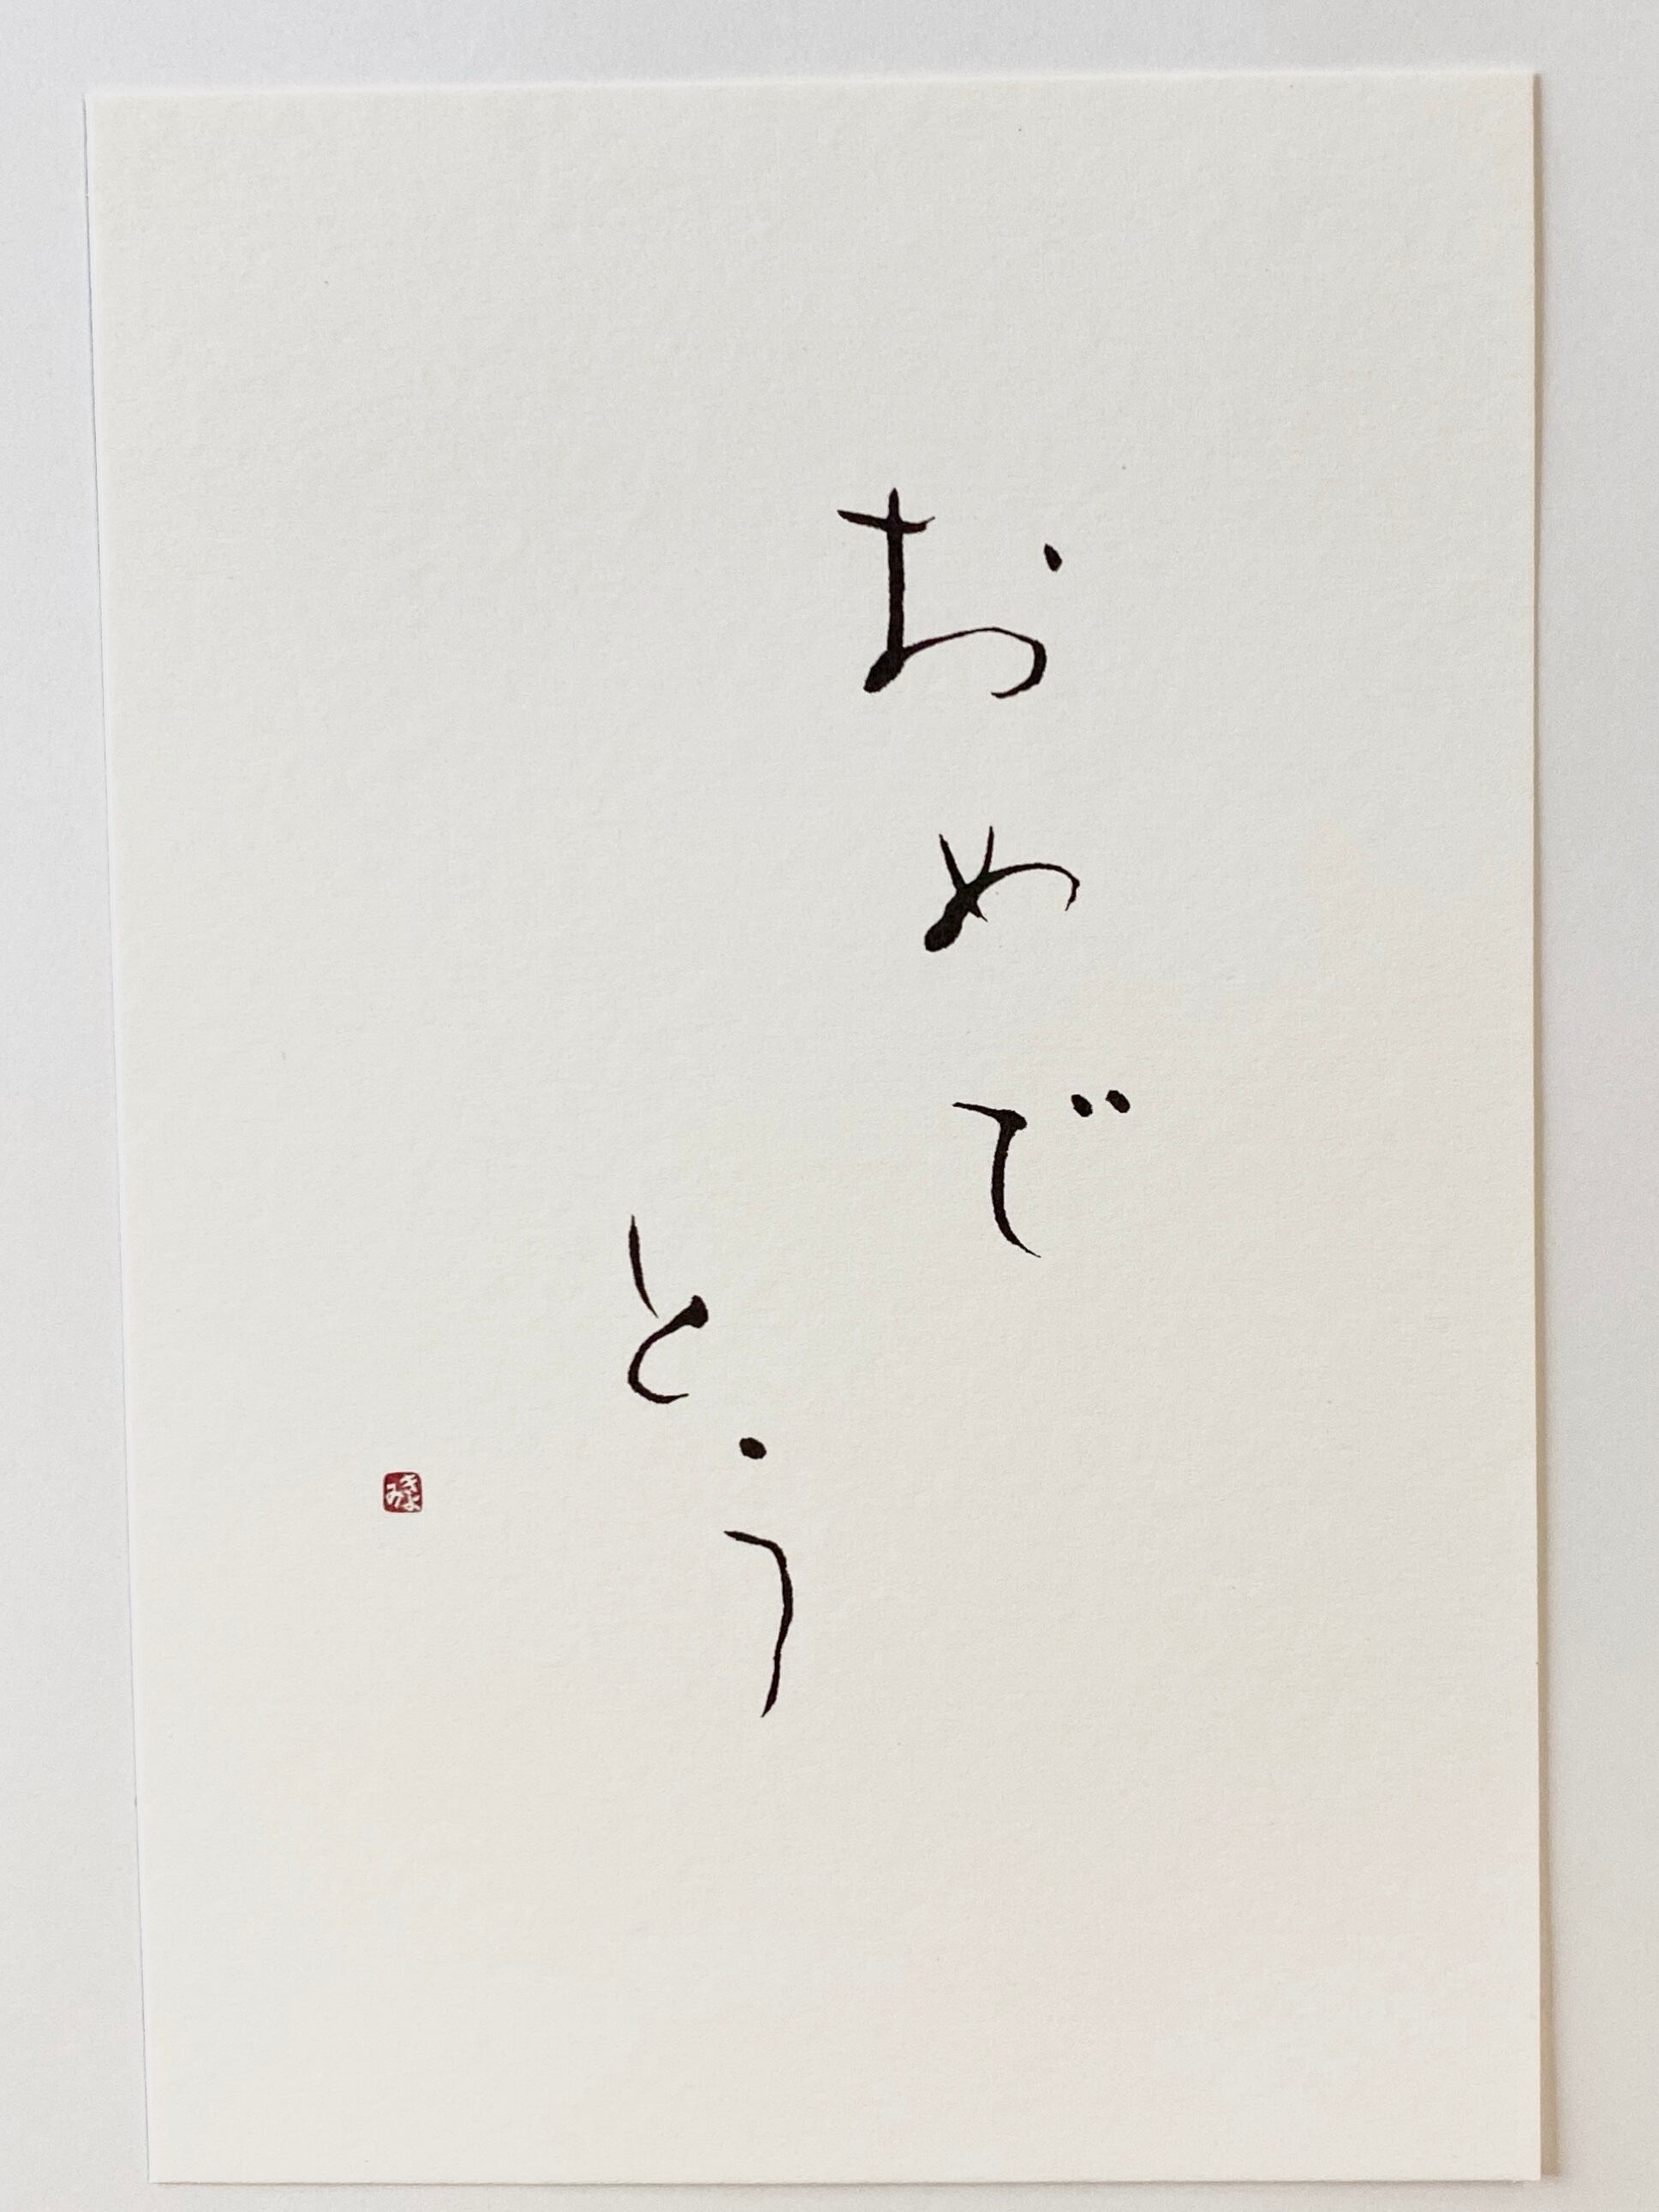 おめで
とう
きよみ